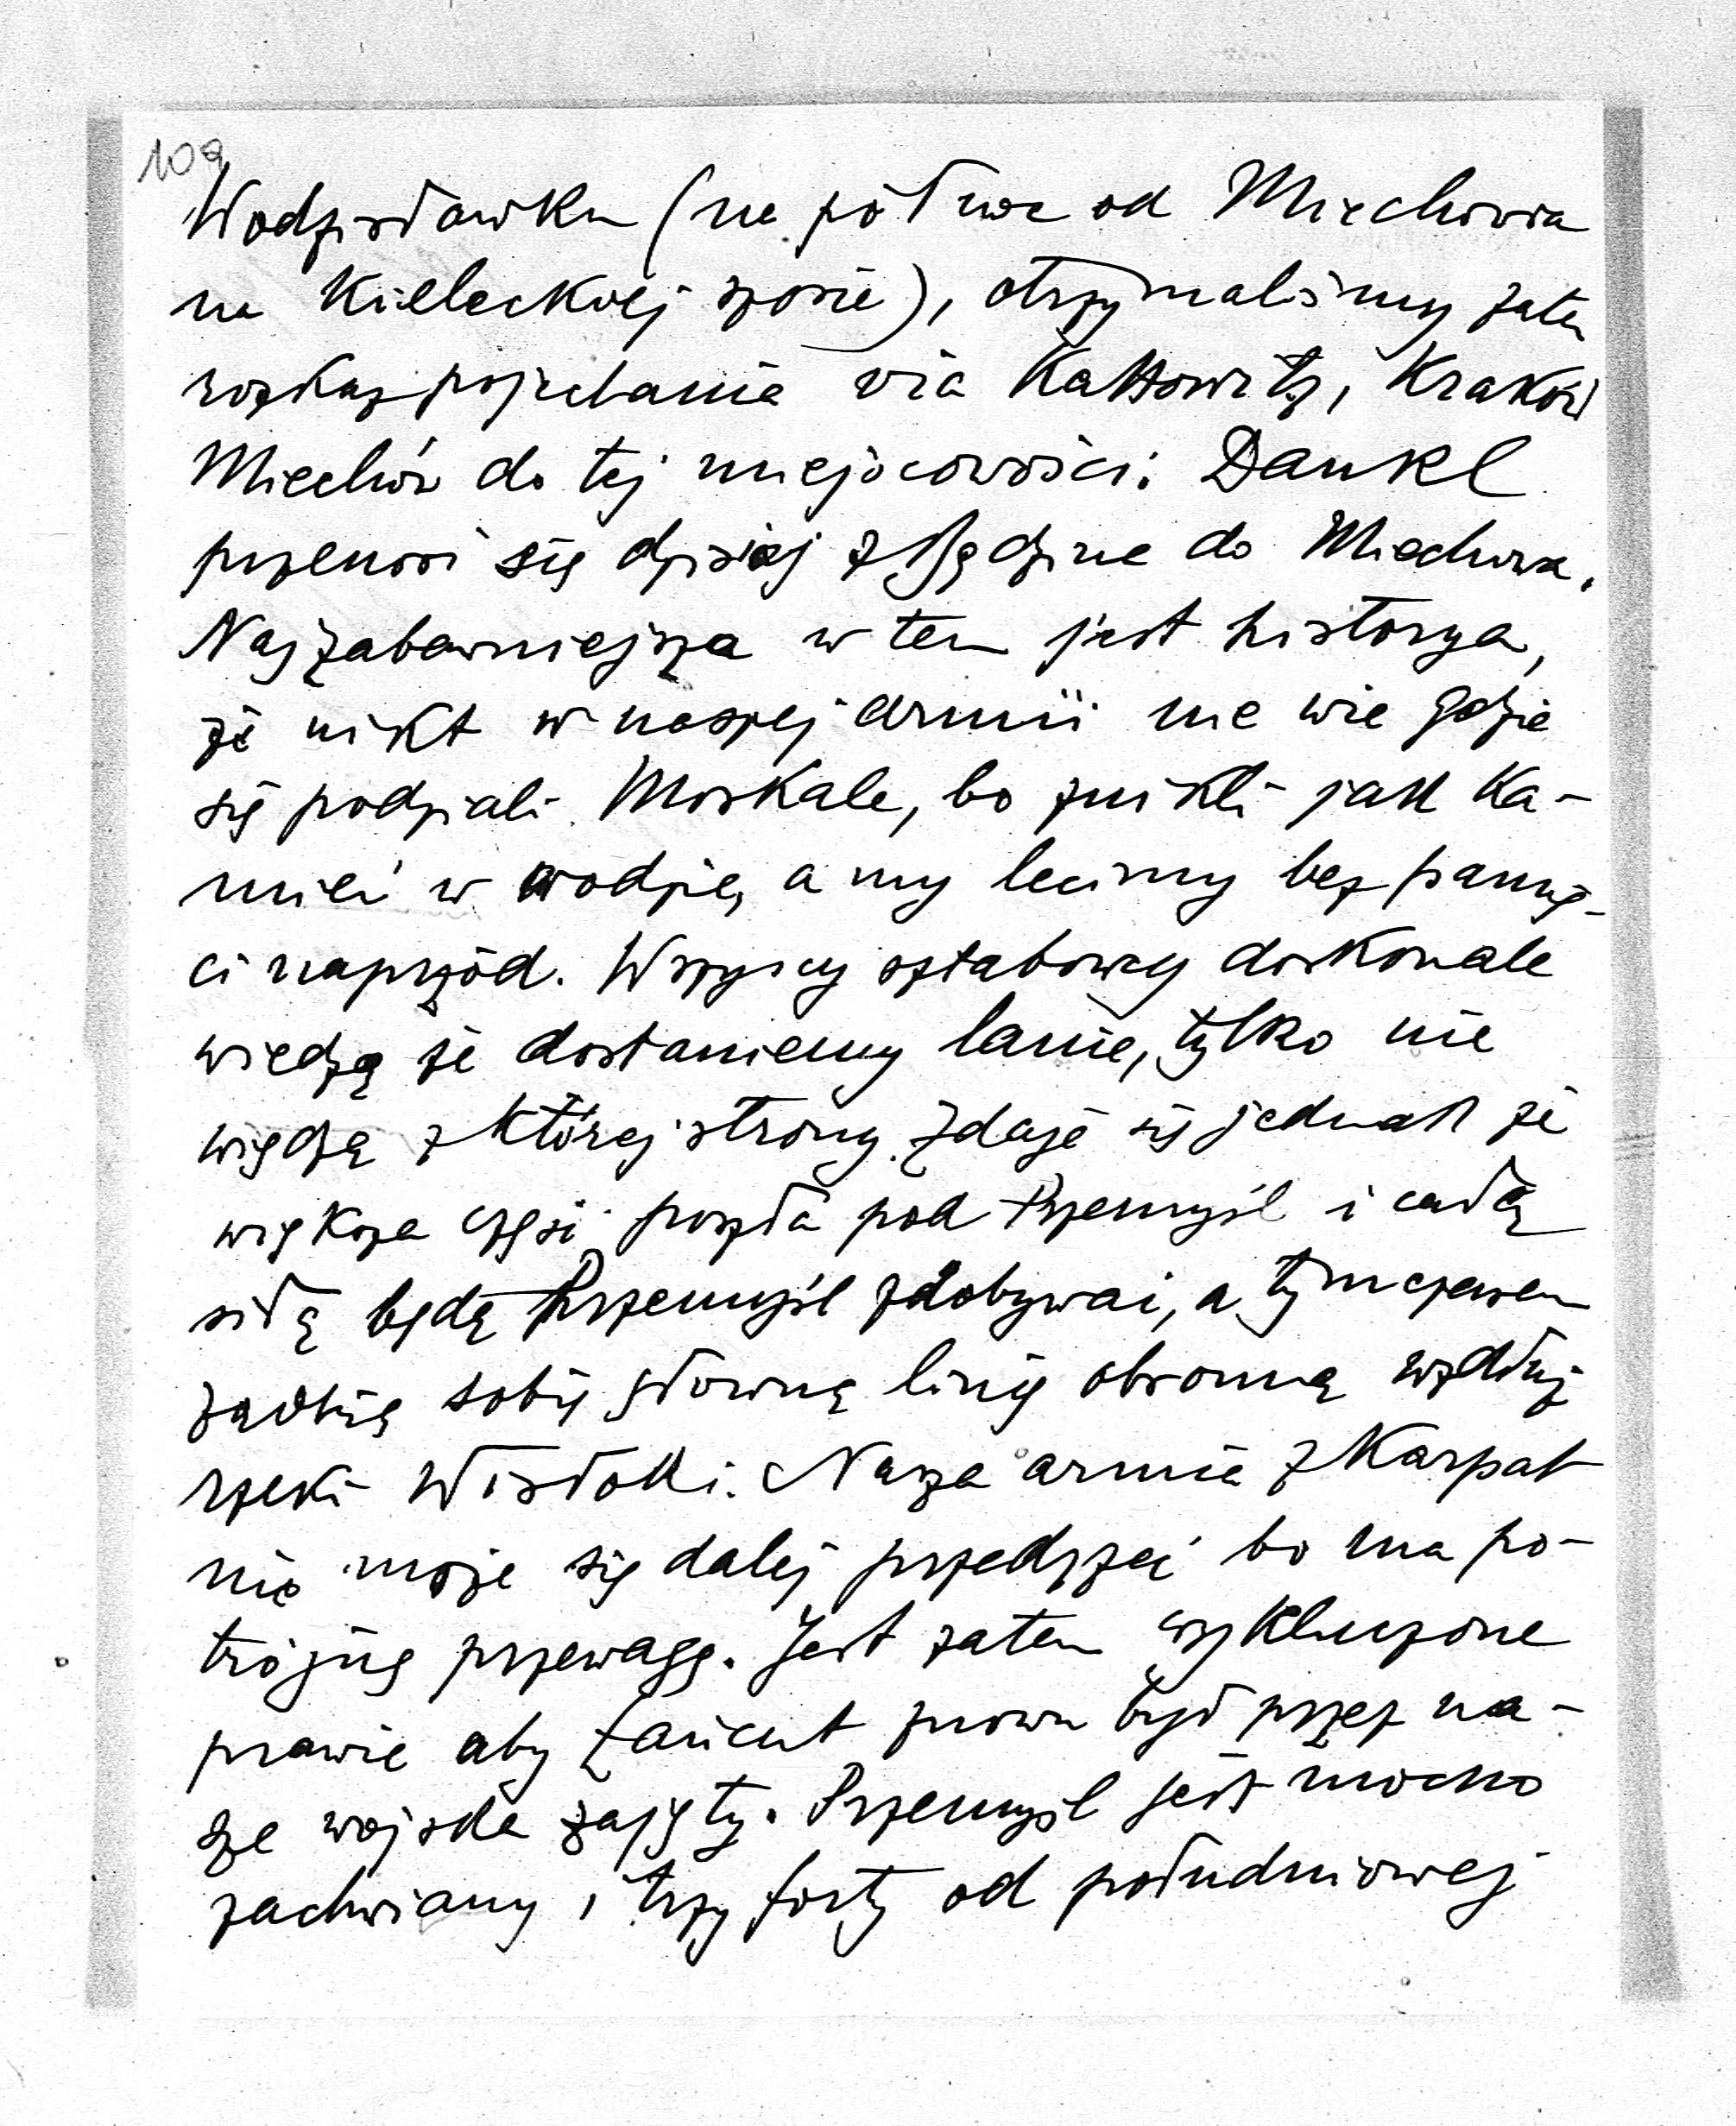 109
Wodzisławku (na północ od Miechowa
na Kieleckiej szosie), otrzymaliśmy zatem
rozkaz pojechania via Kattowitz, Kraków
Miechów do tej miejscowości. Dankl
przenosi się dzisiaj z Będzina do Miechowa.
Najzabawniejsza w tem jest historya,
że nikt w naszej armii nie wie gdzie
się podziali Moskale, bo znikli jak ka-
mień w wodzie, a my lecimy bez pamię-
ci naprzód. Wszyscy sztabowcy doskonale
wiedzą że dostaniemy lanie, tylko nie
wiedzą z której strony. Zdaje się jednak że
większa część poszła pod Przemyśl i całą
siłą będą Przemyśl zdobywać, a tymczasem
robią sobie główną linię obronną wzdłuż
rzeki Wisłoki. Nasza armia z Karpat
nie może się dalej przedrzeć bo ma po-
trójną przewagę. Jest zatem wykluczone
prawie aby Łańcut znowu był przez na-
sze wojska zajęty. Przemyśl jest mocno
zachwiany i trzy forty od południowej